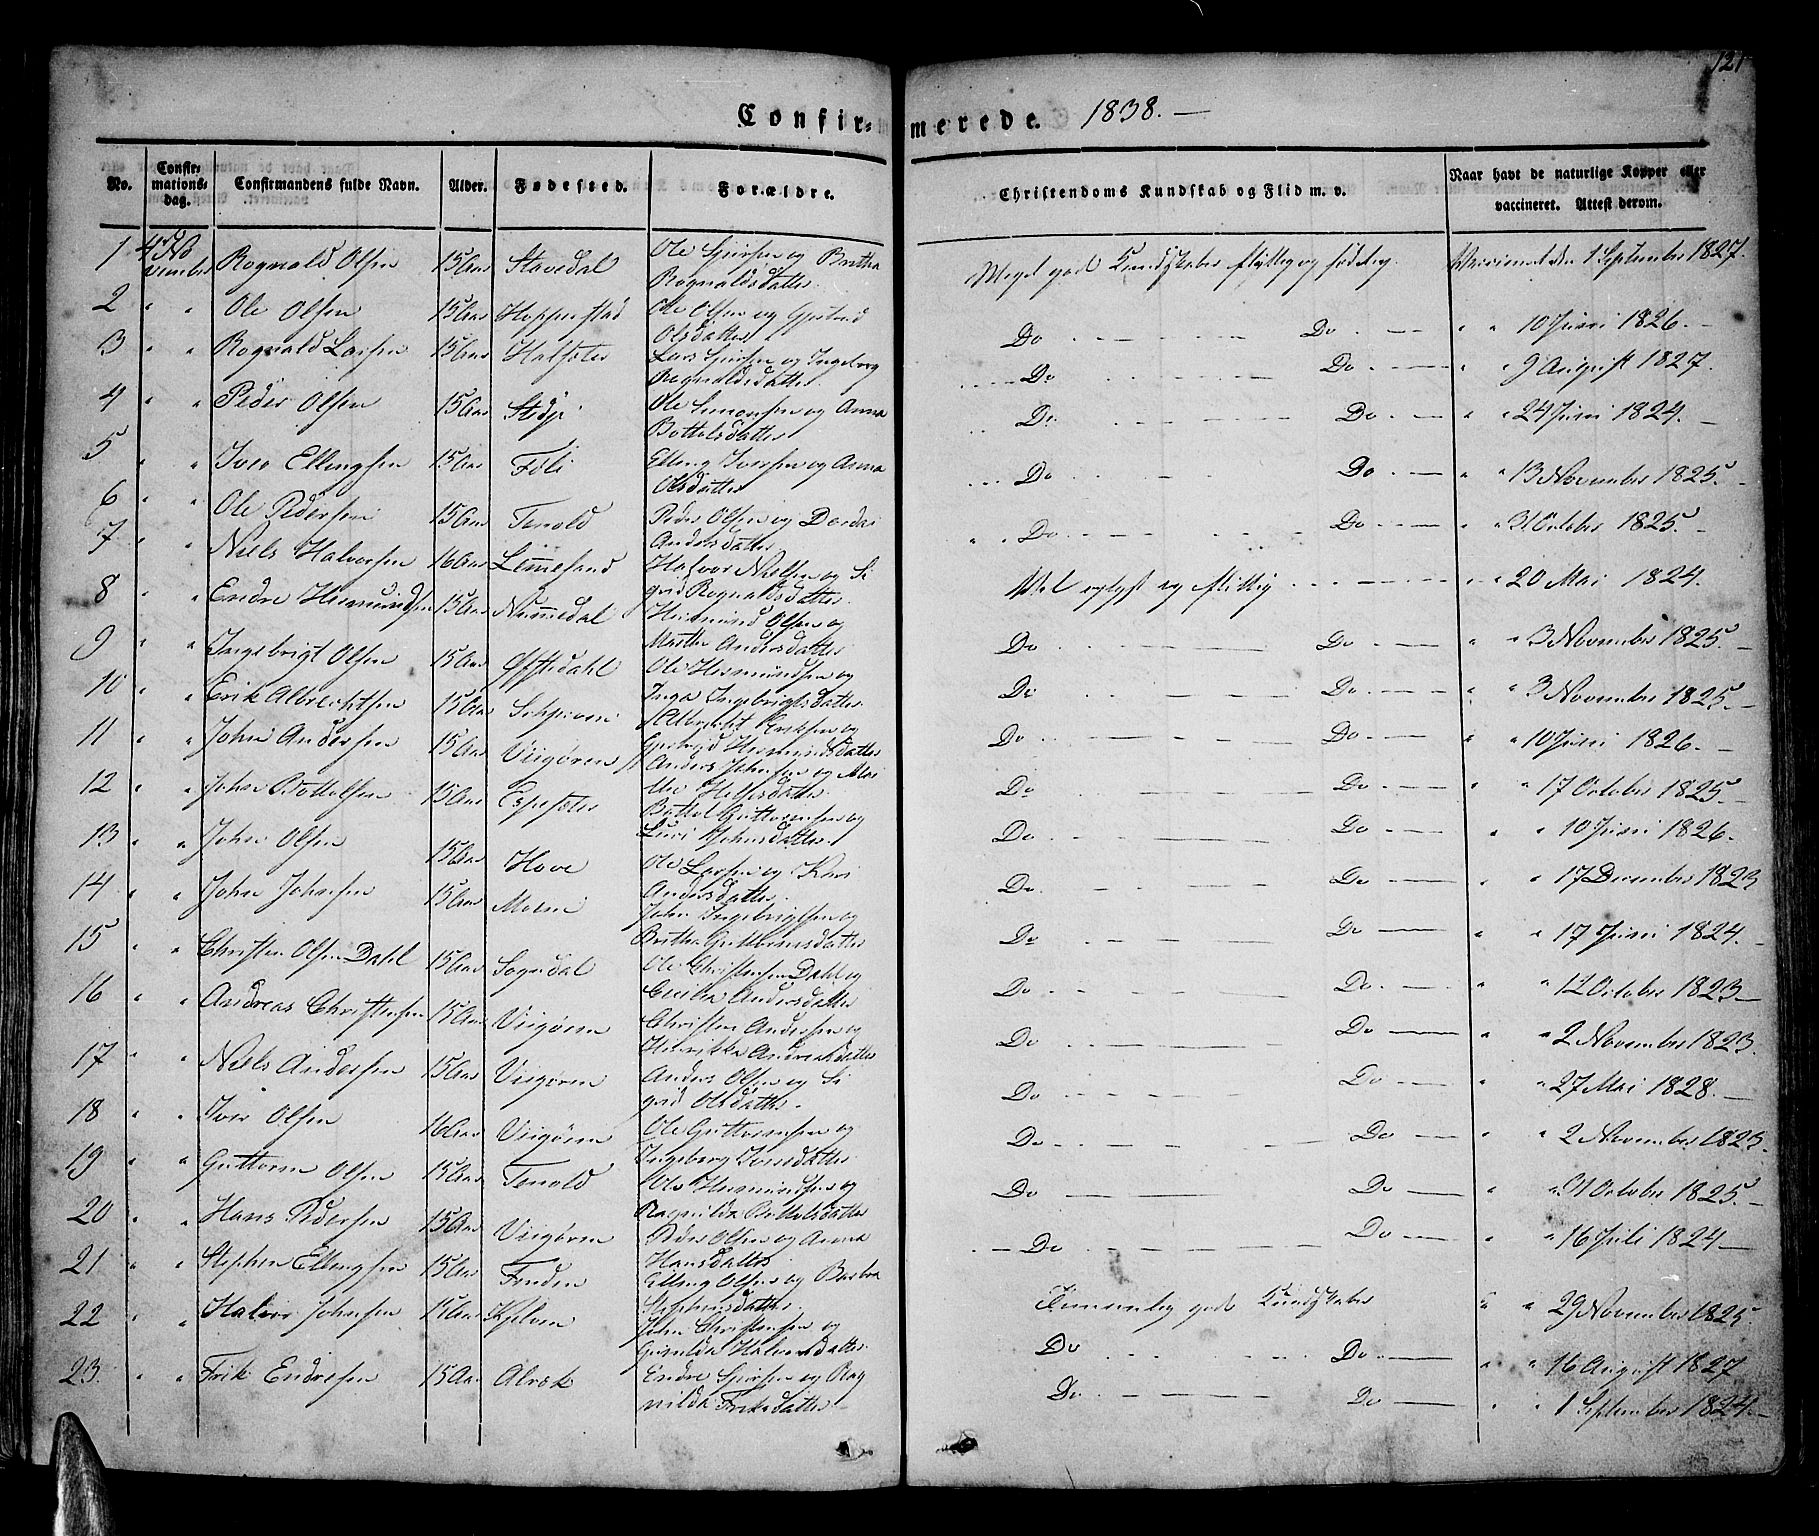 121
Confir= merede. 1838. —
No. Confir=mations=dag. Confirmandens fulde Navn. Alder. Fødested. Forældre. Christendoms Kundskab og Flid m. v. Naar havt de naturlige Kopper eller vaccineret. Attest derom.
1 4de November Rognald Olsen 15 Aar Stavedal Ole Sjursen og Brittha Rognaldsdatter. Meget god Kundskaber flittig og sædelig. Vaccineret den 1 September 1827.
2 " " Ole Olsen 15 Aar Hopperstad Ole Olsen og Olsdatter Do Do " " 10 Juni 1826.
3 " " Rognald Larsen 15 Aar Lars Sjursen og Ingeborg Rognaldsdatter. Do Do " " 9 August 1827.
4 " " Peder Olsen 15 Aar Stedje Ole Simonsen og Anna Bottolsdatter Do Do " " 24 Juni 1824.
5 " " Iver Ellingsen 15 Aar Føli Elling Iversen og Anna Olsdatter Do Do " " 13 November 1825.
6 " " Ole Pedersen 15 Aar Tenold Peder Olsen og Dordei Andersdatter Do Do " " 31 October 1825.
7 " " Niels Halvorsen 16 Aar Halvor Nielsen og Sigrid Rognaldsdatter. Vel oplyst og flittig " " 20 Mai 1824.
8 " " Endre Hermundsen 15 Aar Nummedal Hermund Olsen og Marthe Andersdatter Do Do " " 3 November 1825.
9 " " Ingebrigt Olsen 15 Aar Øffstedahl Ole Hermundsen og Inga Ingebrigtsdatter Do Do " " 3 November 1825.
10 " " Erik Albrechtsen 15 Aar Albrecht Eriksen og Hermundsdatter Do Do " " 10 Juni 1826.
11 " " John Andersen 15 Aar Viigøren Anders Johnsen og Do Do " " 17 October 1825.
12 " " John Bottolsen 15 Aar Espesæter Bottol Guttormsen og Johnsdatter. Do Do " " 10 Juni 1826.
13 " " John Olsen 15 Aar Hove Ole Larsen og Kari Andersdatter. Do Do " " 17 December 1823
14 " " John Johnsen 15 Aar John Ingebrigtsen og Brittha Guttormsdatter Do Do " " 17 Juni 1824.
15 " " Christen Olsen Dahl 15 Aar Sogndal Ole Christensen Dahl og Cecilia Andersdatter Do Do " " 12 October 1823.
16 " " Andreas Christensen 15 Aar Viigøren Christen Andersen og Henrikka Andreasdatter Do Do " " 2 November 1823.
17 " " Niels Andersen 15 Aar Viigøren Anders Olsen og Sigrid Olsdatter. Do Do " " 27 Mai 1828.
18 " " Iver Olsen 16 Aar Viigøren Ole Guttormsen og Ingeborg Iversdatter Do Do " " 2 November 1823.
19 " " Guttorm Olsen 15 Aar Tenold Ole Hermundsen og Ragnilda Bottolsdatter Do Do " " 31 October 1825.
20 " " Hans Pedersen 15 Aar Viigøren Peder Olsen og Anna Hansdatter Do Do " " 16 Juli 1824
21 " " Stephen Ellingsen 15 Aar Fenden Elling Olsen og Barbra Stephensdatter Temmelig gode Kundskaber " " 29 November 1825.
22 " " Halvor Johnsen 15 Aar John Christensen og Halvorsdatter Do Do " " 16 August 1827
23. " " Erik Endresen 15 Aar Alræk Endre Sjursen og Ragnilda Eriksdatter Do Do " " 1 September 1824.